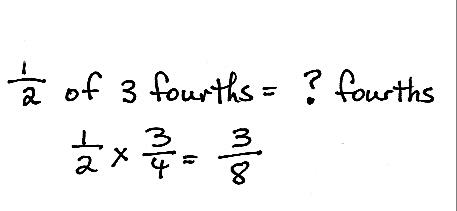 1/2 of 3 fourths = ? fourths
1/2 × 3/4 = 3/8